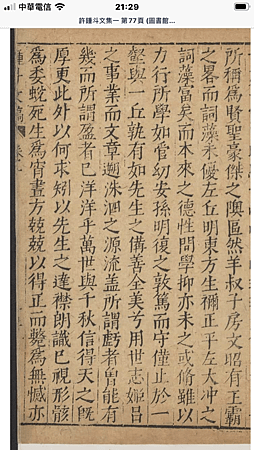 21:29
許鍾斗文集一 第77頁 (圖書館...
所稱爲賢聖豪傑之隩區然羊叔子房文昭有王霸
之畧而詞藻未優左丘明東方生禰正平左大冲之
詞藻富矣而本來之德性問學抑亦未之或脩雖以
力行所學如管幼安孫明復之敦篤而守僅止於一
壑與一丘孰有如先生之備善全美兮用世志姬呂
之事業而文章遡洙泗之源流盖所謂虧者曽能有
幾而所謂盈者已洋洋乎萬世與千秋信得天之旣
厚更此外以何求矧以先生之達襟朗識已視形骸
爲委蛻死生爲宵晝方兢兢以得正而斃爲無憾亦